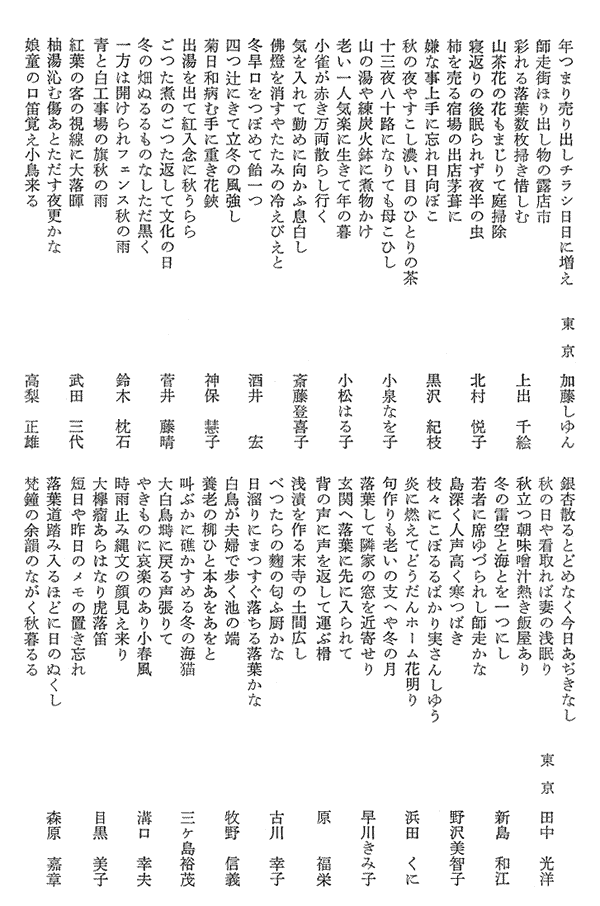 年つまり売り出しチラシ日日に増え　東　京　加藤しゆん
師走街ほり出し物の露店市
彩れる落葉数枚掃き惜しむ　上出　千絵
山茶花の花もまじりて庭掃除
寝返りの後眠られず夜半の虫　北村　悦子
柿を売る宿場の出店茅葺に
嫌な事上手に忘れ日向ぼこ　黒沢　紀枝
秋の夜やすこし濃い目のひとりの茶
十三夜八十路になりても母こひし　小泉なを子
山の湯や練炭火鉢に煮物かけ
老い一人気楽に生きて年の暮　小松はる子
小雀が赤き万両散らし行く
気を入れて勤めに向かふ息白し　斎藤登喜子
佛燈を消すやたたみの冷えびえと
冬早口をつぼめて飴一つ　酒井　宏
四つ辻にきて立冬の風強し
菊日和病む手に重き花鋏　神保　慧子
出湯を出て紅入念に秋うらら
ごつた煮のごつた返して文化の日　菅井　藤晴
冬の畑ぬるるものなしただ黒く
一方は開けられフェンス秋の雨　鈴木　枕石
青と白工事場の旗秋の雨
紅葉の客の視線に大落暉　武田　三代
柚湯沁む傷あとただす夜更かな
娘童の口笛覚え小鳥来る　高梨　正雄
銀杏散るとどめなく今日あぢきなし
秋の日や看取れば妻の浅眠り　東　京　田中　光洋
秋立つ朝味噌汁熱き飯屋あり
冬の雷空と海とを一つにし　新島　和江
若者に席ゆづられし師走かな
島深く人声高く寒つばき　野沢美智子
枝々にこぼるるばかり実さんしゆう
炎に燃えてどうだんホーム花明り　浜田　くに
句作りも老いの支へや冬の月
落葉して隣家の窓を近寄せり　早川きみ子
玄関へ落葉に先に入られて
背の声に声を返して運ぶ榾　原　福栄
浅漬を作る末寺の土間広し
べつたらの麴の匂ふ厨かな　古川　幸子
日溜りにまつすぐ落ちる落葉かな
白鳥が夫婦で歩く池の端　牧野　信義
養老の柳ひと本あをあをと
叫ぶかに礁かすめる冬の海猫　三ケ島裕茂
大白鳥塒に戻る声張りて
やきものに哀楽のあり小春風　溝口　幸夫
時雨止み縄文の顔見え来り
大欅瘤あらはなり虎落笛　目黒　美子
短日や昨日のメモの置き忘れ
落葉道踏み入るほどに日のぬくし　森原　嘉章
梵鐘の余韻のながく秋暮るる